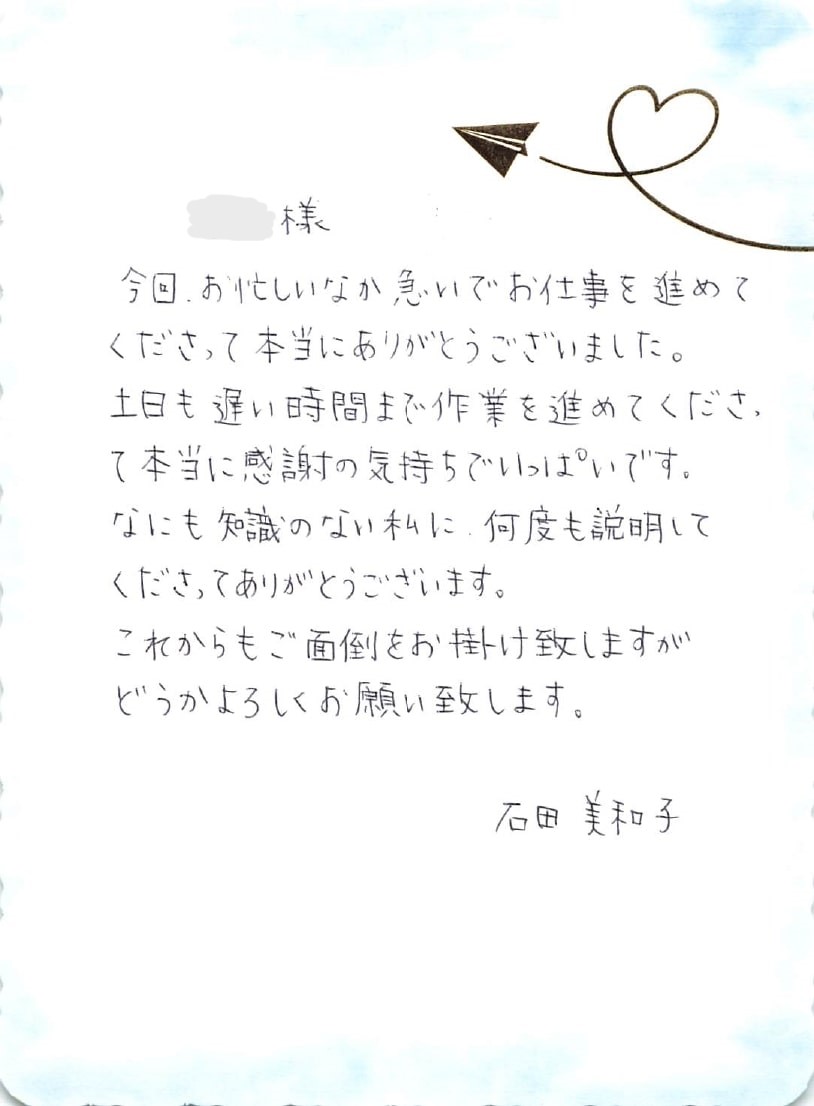 様
今回、お忙しいなか急いでお仕事を進めて
くださって本当にありがとうございました。
土日も遅い時間まで作業を進めてくださっ
て本当に感謝の気持ちでいっぱいです。
なにも知識のない私に、何度も説明して
くださってありがとうございます。
これからもご面倒をお掛け致しますが
どうかよろしくお願い致します。
石田 美和子